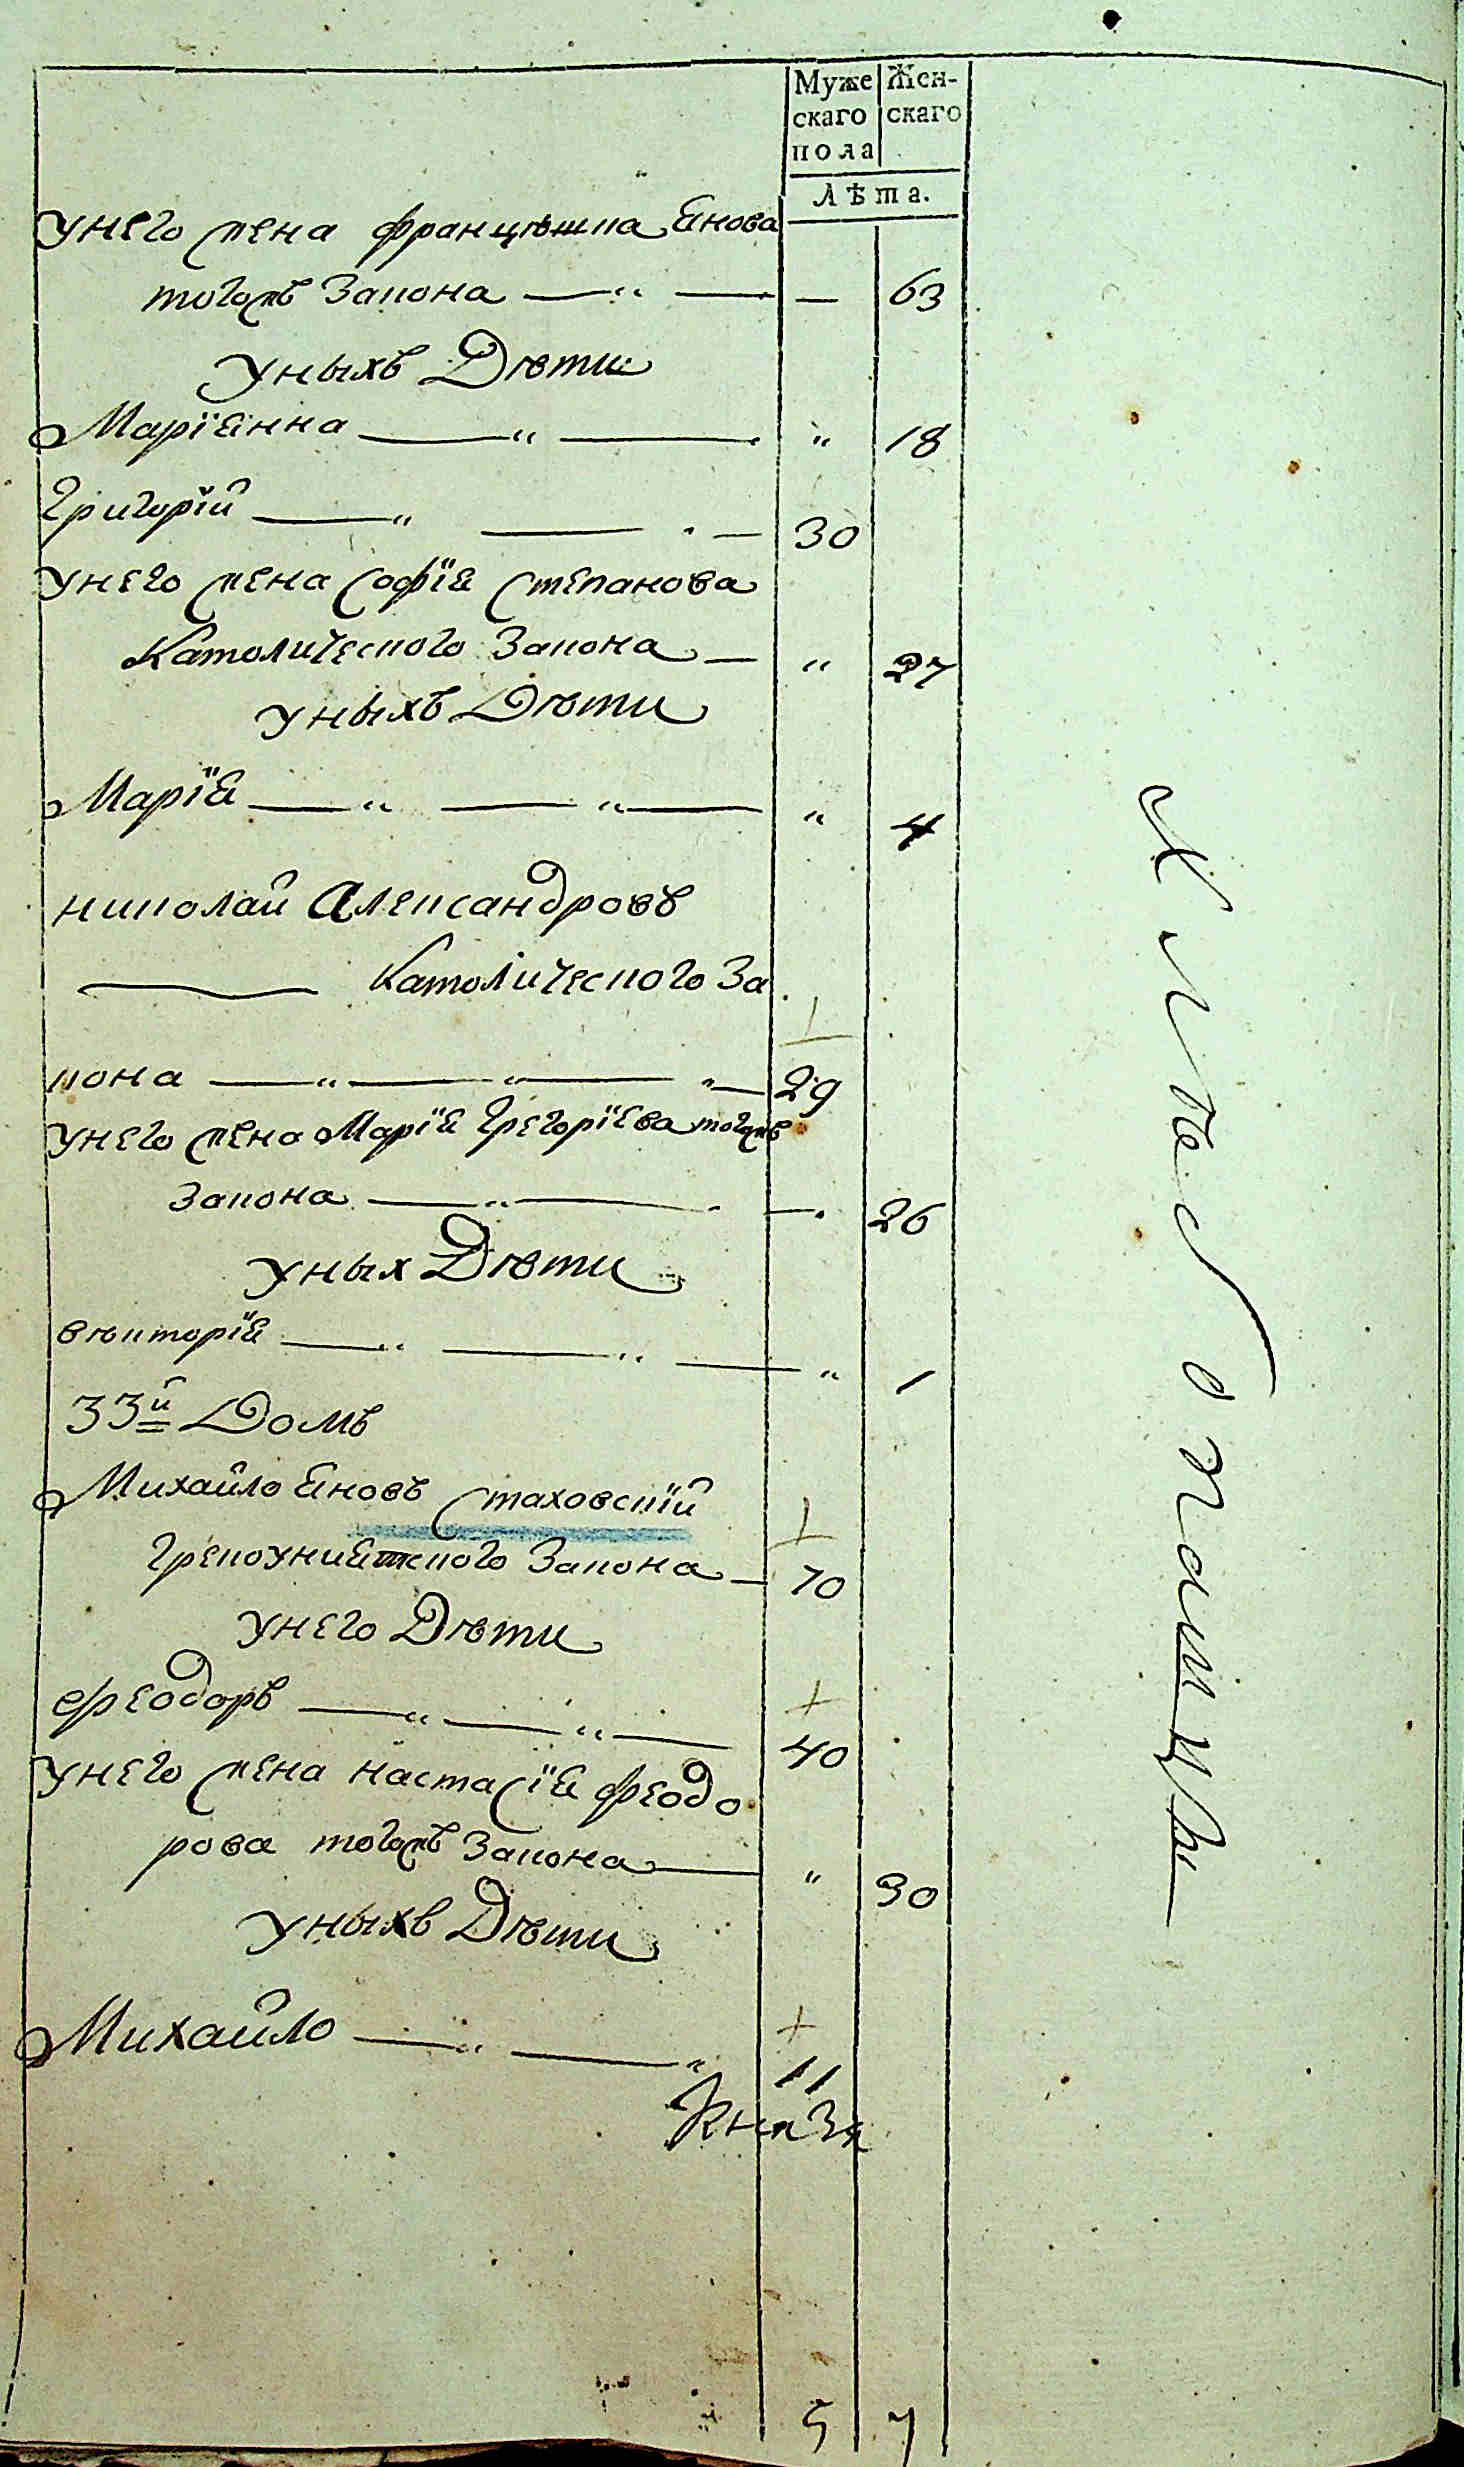 Муже Жен-
скаго скаго
пола
Лѣта.
унего жена францѣшка Янова
тогожъ Закона — 63
уныхъ Дѣти
Маріянна " 18
Григорій 30
унего жена Софія Степанова
Католического Закона " 27
уныхъ Дѣти
Марія " 4
николай Александровъ
Католического За
кона 29
унего жена Марія Грегоріева тогожъ
Закона — 26
уных Дѣти
вѣкторія " 1
33й Домъ
Михайло Яновъ Стаховскій
Грекоуниятского Закона 70
унего Дѣти
феодоръ 40
унего жена настасія феодо
рова тогожъ Закона " 30
уныхъ Дѣти
Михайло 11
Князя
5 7
Хлебопашцы